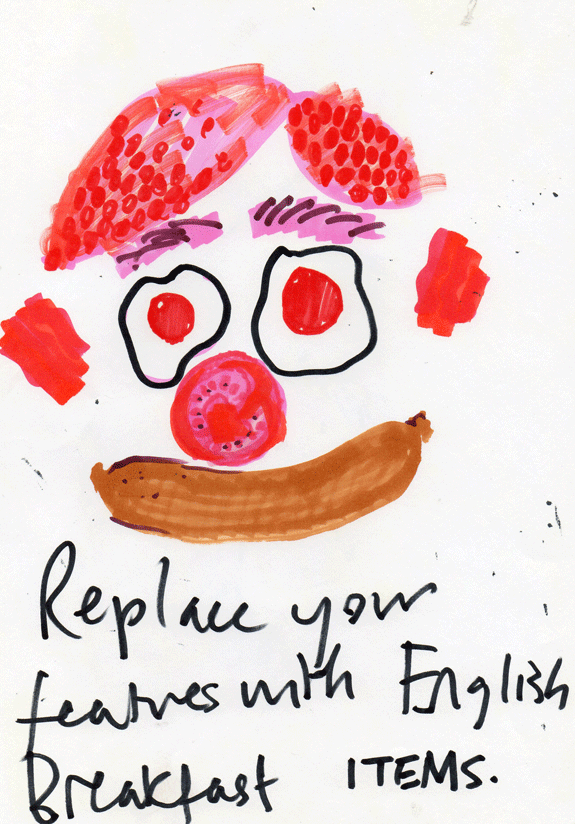 Replace your
features with English
Breakfast ITEMS.